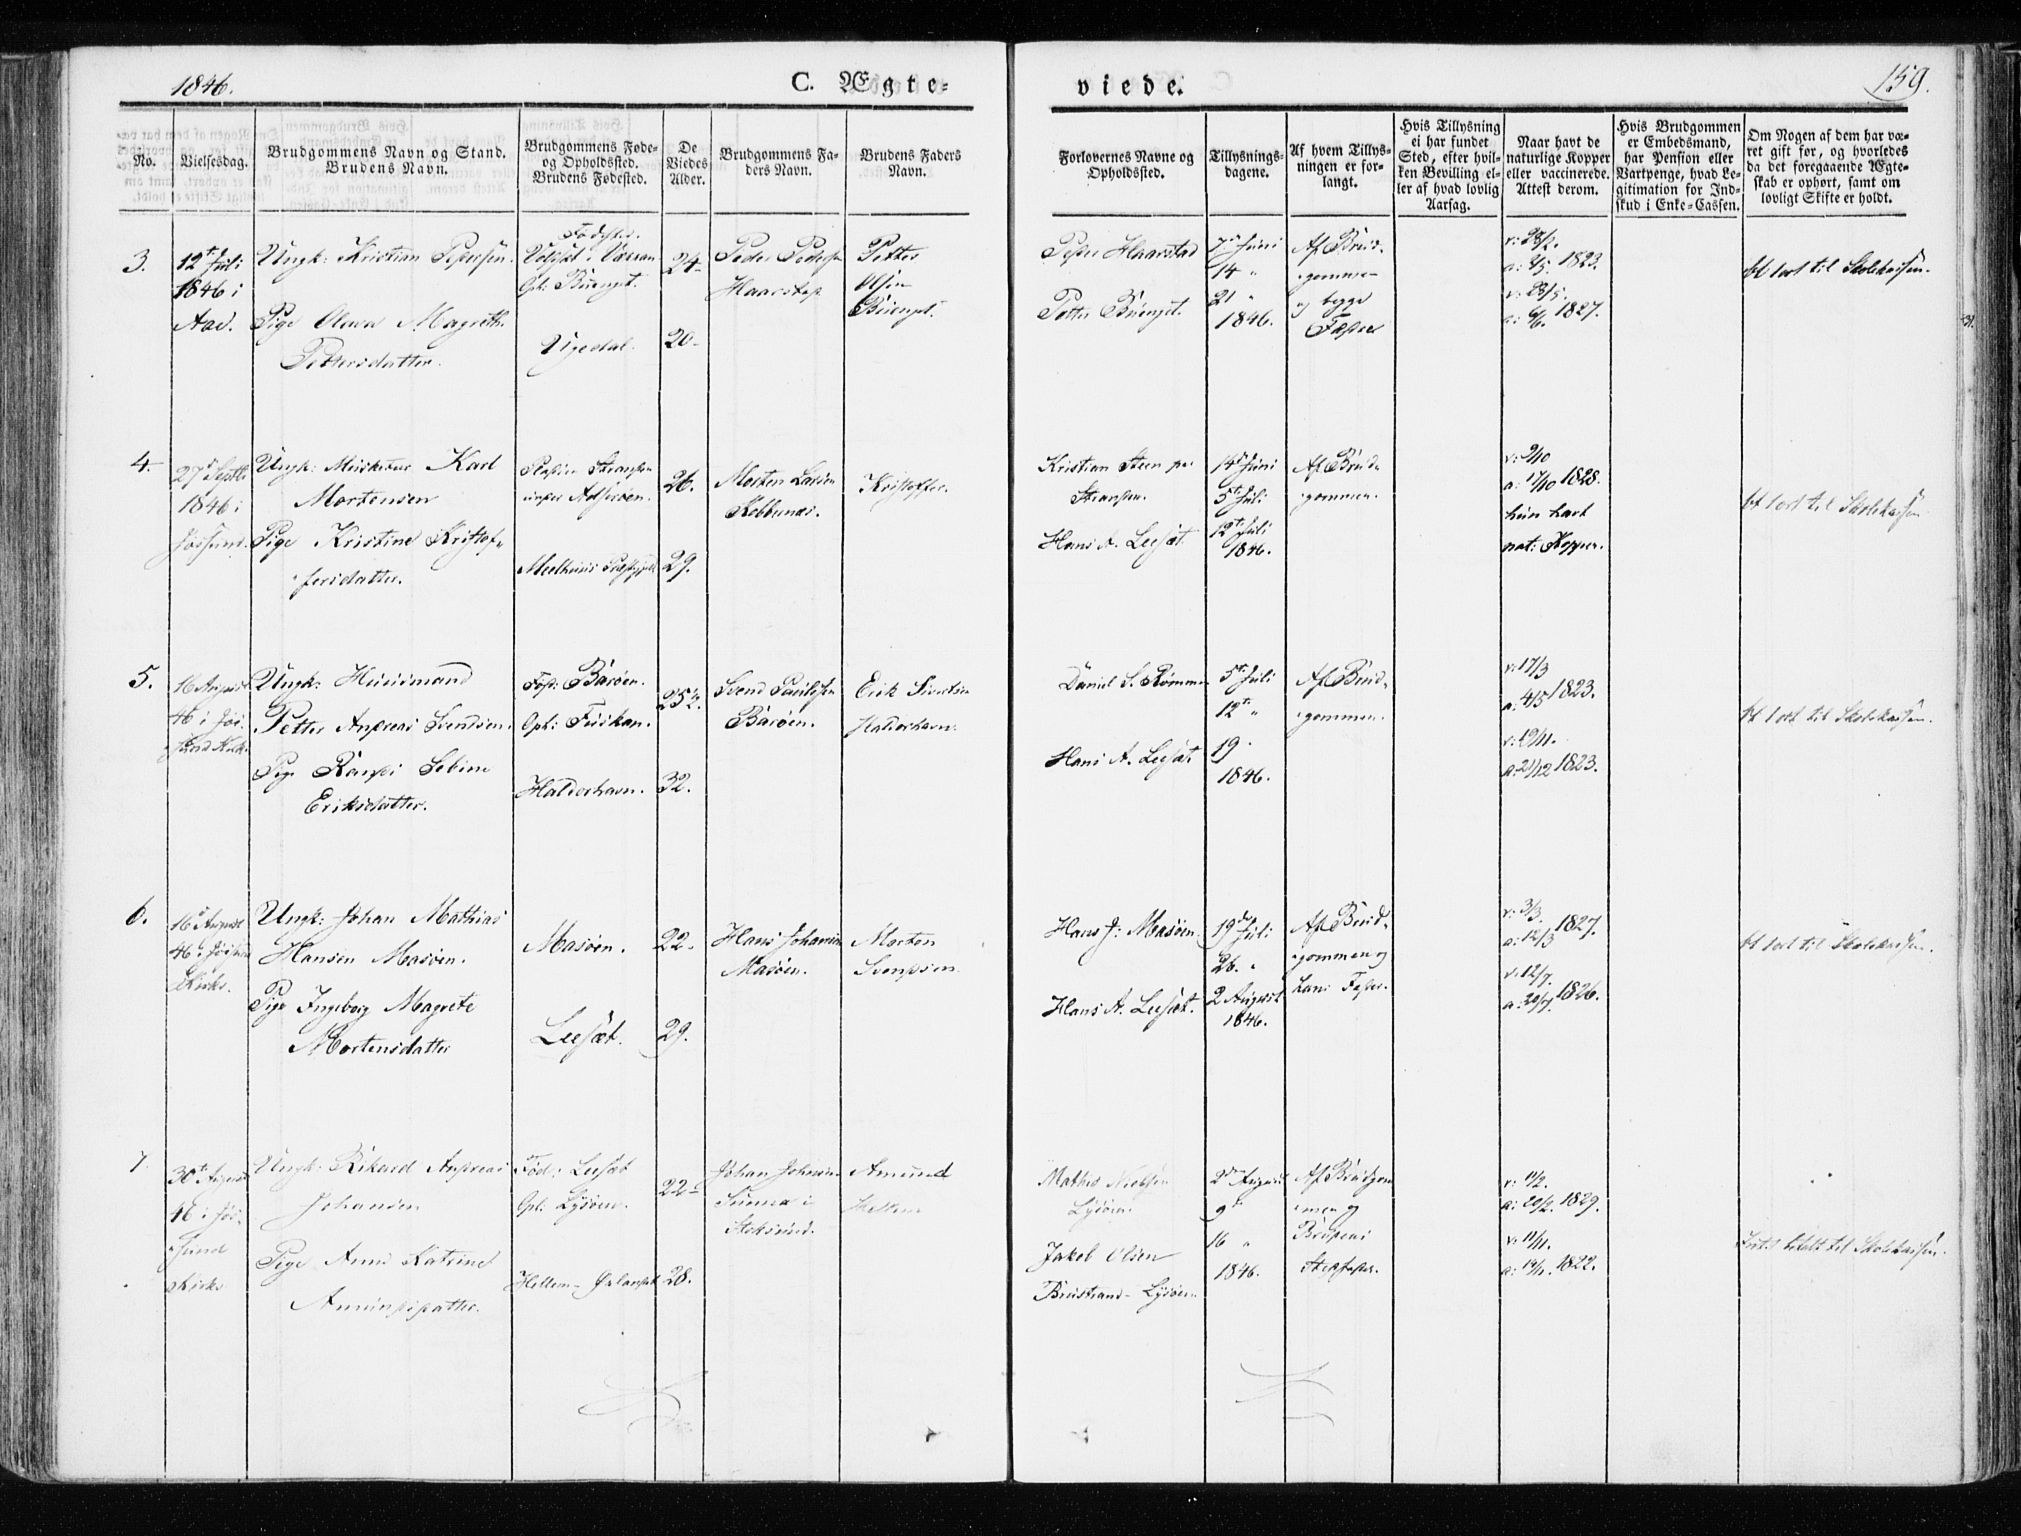 1846.
C. Ægte-
viede.
159.
No.
Vielsesdag.
Brudgommens Navn og Stand.
Brudens Navn.
Brudgommens Føde-
og Opholdssted.
Brudens Fødested.
De
Viedes
Alder.
Brudgommens Fa-
ders Navn.
Brudens Faders
Navn.
Forlovernes Navne og
Opholdssted.
Tillysnings-
dagene.
Af hvem Tillys-
ningen er for-
langt.
Hvis Tillysning
ei har fundet
Sted, efter hvil-
ken Bevilling el-
ler af hvad lovlig
Aarsag.
Naar havt de
naturlige Kopper
eller vaccinerede.
Attest derom.
Hvis Brudgommen
er Embedsmand,
har Pension eller
Vartpenge, hvad Le-
gitimation for Ind-
skud i Enke-Cassen.
Om Nogen af dem har væ-
ret gift før, og hvorledes
da det foregaaende Ægte-
skab er ophørt, samt om
lovligt Skifte er holdt.
3.
12te Juli
1846 i
Aae.
Ungk: Kristian Pedersen.
Pige Olava Magreth.
Pettersdatter.
Ugedal.
24
20
Peder
Haarstad
Petter
Olsen
Peder Haarstad
Petter
7de Juni
14 "
21 "
1846.
Af Brud-
gommen
og begge
Fædre
v: 28/2.
1823.
v: 28/5.
1827.
bt 1 ort til Skolekassen.
4.
27de Septb
1846 i
Jøssund.
Ungk: Musketeer Karl
Mortensen
Pige Kristine Kristof-
fersdatter.
26.
29.
Morten Larsen
Kobbenæs.
Kristoffer.
Kristian Steen
Hans A. Leesæt.
14de Juni
5te Juli
12te Juli
1846.
Af Brud-
gommen.
v: 9/10
a: 17/10 1828.
hun havt
nat: Kopper.
bt 1 ort til Skolekassen
5.
16 August
46 i Jøs-
sund Kirk.
Ungk: Huusmand
Petter Andreas Svendsen.
Pige Randi Sebine
Eriksdatter.
Fød: Barøen.
Haldorhavn.
25½
32.
Svend
Barøen.
Erik Sivertsen
Haldorhavn.
Daniel S. Rømmen
Hans A. Leesæt
5te Juli
12te "
19
1846.
Af Brud-
gommen.
v: 17/3
a: 4/5 1823.
v: 19/11.
a: 21/12 1823.
bt 1 ort til Skolekassen.
6.
16de August
46 i Jøssund
Kirke.
Ungk: Johan Mathias
Hansen Masøen.
Pige Ingeborg Magrete
Mortensdatter
Masøen.
Leesæt.
22.
29.
Hans Johansen
Masøen.
Morten
Svendsen
Hans J: Masøen.
Hans A. Leesæt.
19de Juli
26. "
2 August
1846.
Af Brud-
gommen og
hans Fader.
v: 3/3.
a: 12/3 1827.
v: 12/7.
a: 20/7. 1826.
bt 1 ort til Skolekassen.
7.
30te August
46 i Jøs-
sund
Kirke
Ungk: Rikard Andreas
Johansen
Pige Anne Katrine
Amundsdatter.
Fød: Leesæt
Oph: Lysøen.
Hellem Ørlandet
22
28.
Johan Johnsen
Sumna i
Stoksund.
Amund
Hellem
Mathis Nielsen
Lysøen.
Jakob Olsen
Lysøen.
2den August
9de
16 "
1846.
Af Brudgom
men og
Brudens
Stedfader.
v: 11/2.
a: 20/2. 1829.
v: 11/11.
1822.
til Skolekassen.